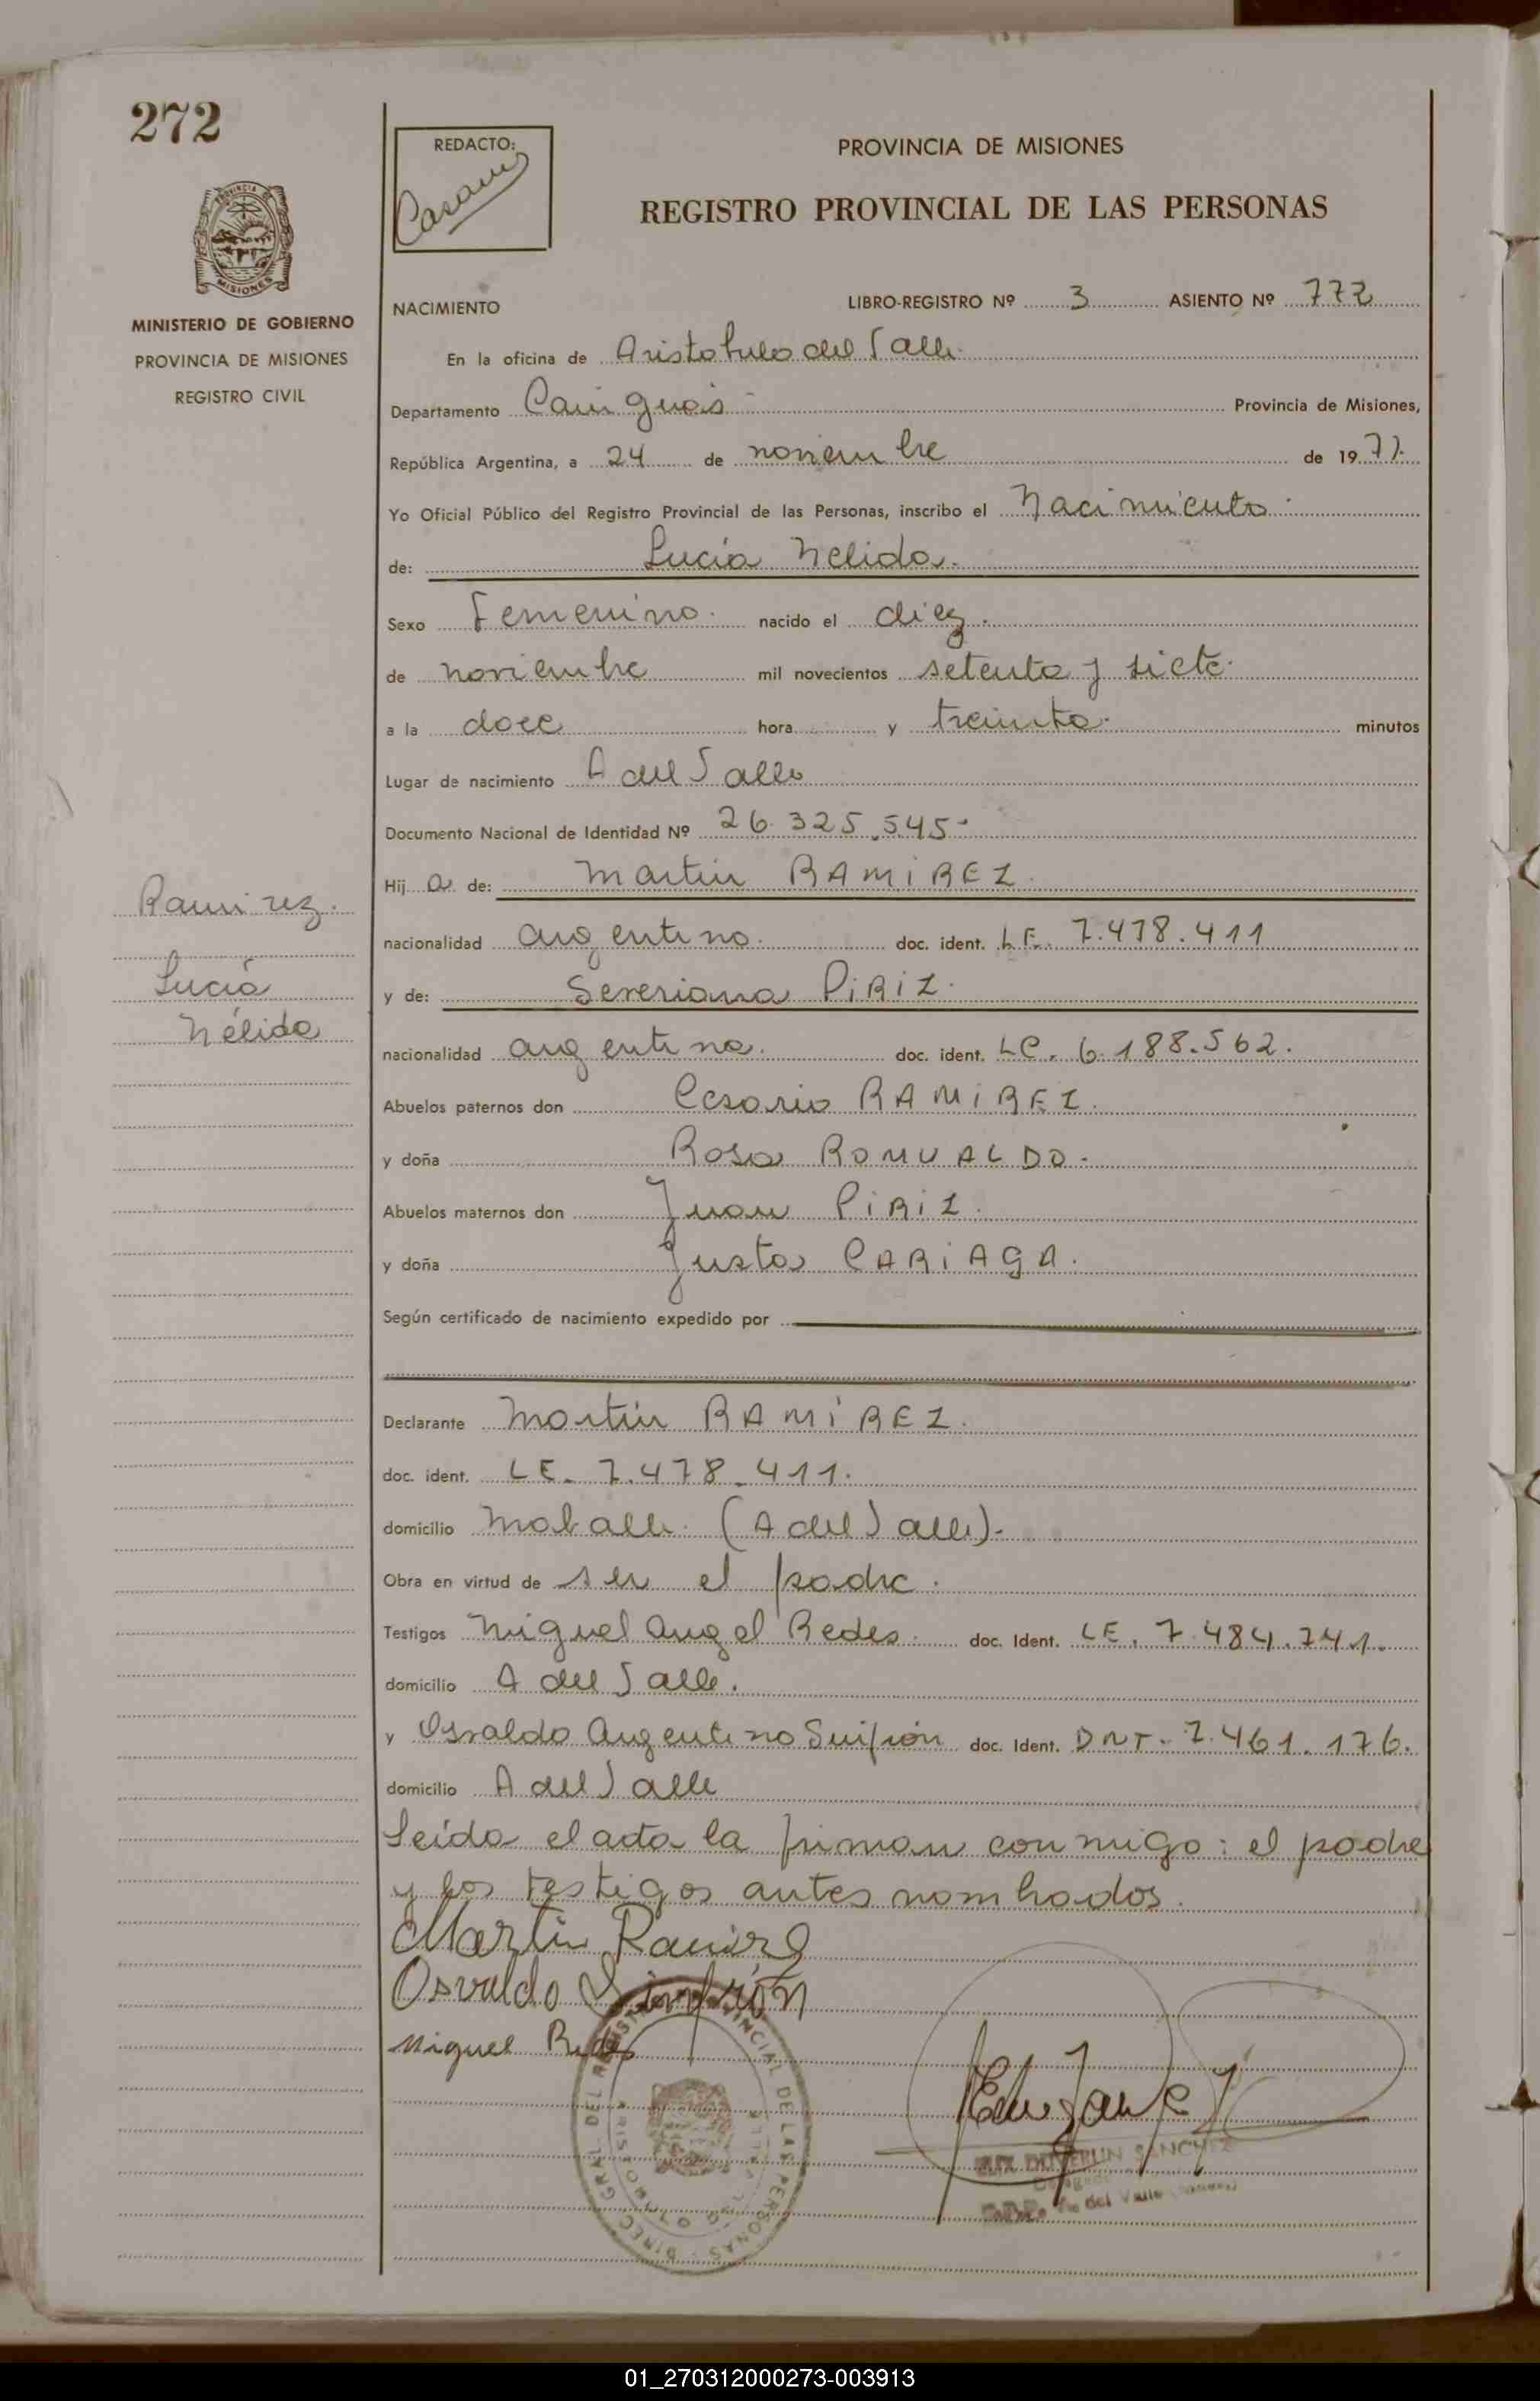 272
REDACTO:
PROVINCIA DE MISIONES
REGISTRO PROVINCIAL DE LAS PERSONAS
MINISTERIO DE GOBIERNO
PROVINCIA DE MISIONES
REGISTRO CIVIL
NACIMIENTO LIBRO-REGISTRO Nº 3 ASIENTO Nº 772
En la oficina de Aristobulo del Valle.
Departamento Cainguás - Provincia de Misiones,
República Argentina, a 24 de noviembre de 1977.
Yo Oficial Público del Registro Provincial de las Personas, inscribo el Nacimiento
de: Lucía Nelida.
Sexo Femenino. nacido el diez.
de noviembre mil novecientos setenta y siete.
a la doce hora y treinta. minutos
Lugar de nacimiento A del Valle
Documento Nacional de Identidad Nº 26.325.545-
Hij a de: Martin RAMIREZ.
Ramirez.
Lucía
Nélida
nacionalidad argentino. doc. ident. L.E. 7.478.411
y de: Severiana PIRIZ.
nacionalidad argentina. doc. ident. LC. 6.188.562.
Abuelos paternos don Cesario RAMIREZ.
y doña Rosa ROMUALDO.
Abuelos maternos don Juan PIRIZ.
y doña Justa CARIAGA.
Según certificado de nacimiento expedido por
Declarante Martin RAMIREZ.
doc. ident. LE. 7.478.411.
domicilio (A del Valle).
Obra en virtud de ser el padre.
Testigos Miguel Angel Redes. doc. Ident. LE. 7.484.741.
domicilio A del Valle.
y Osvaldo Argentino Sinfrón doc. Ident. 7.461.176.
domicilio A del Valle
Leída el acta la firman conmigo: el padre
y los testigos antes nombrados.
Martin Ramirez
Osvaldo Sinfrón
Miguel Redes
SANCHEZ
del Valle
01_270312000273-003913